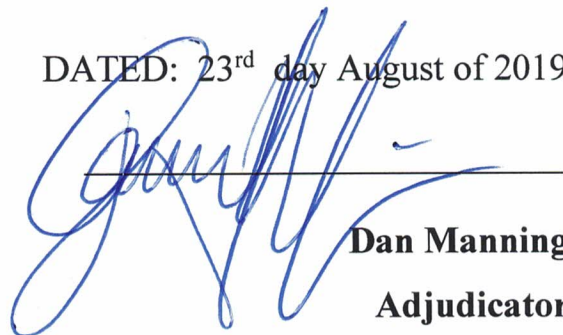 DATED: 23rd day August of 2019
Dan Manning
Adjudicator